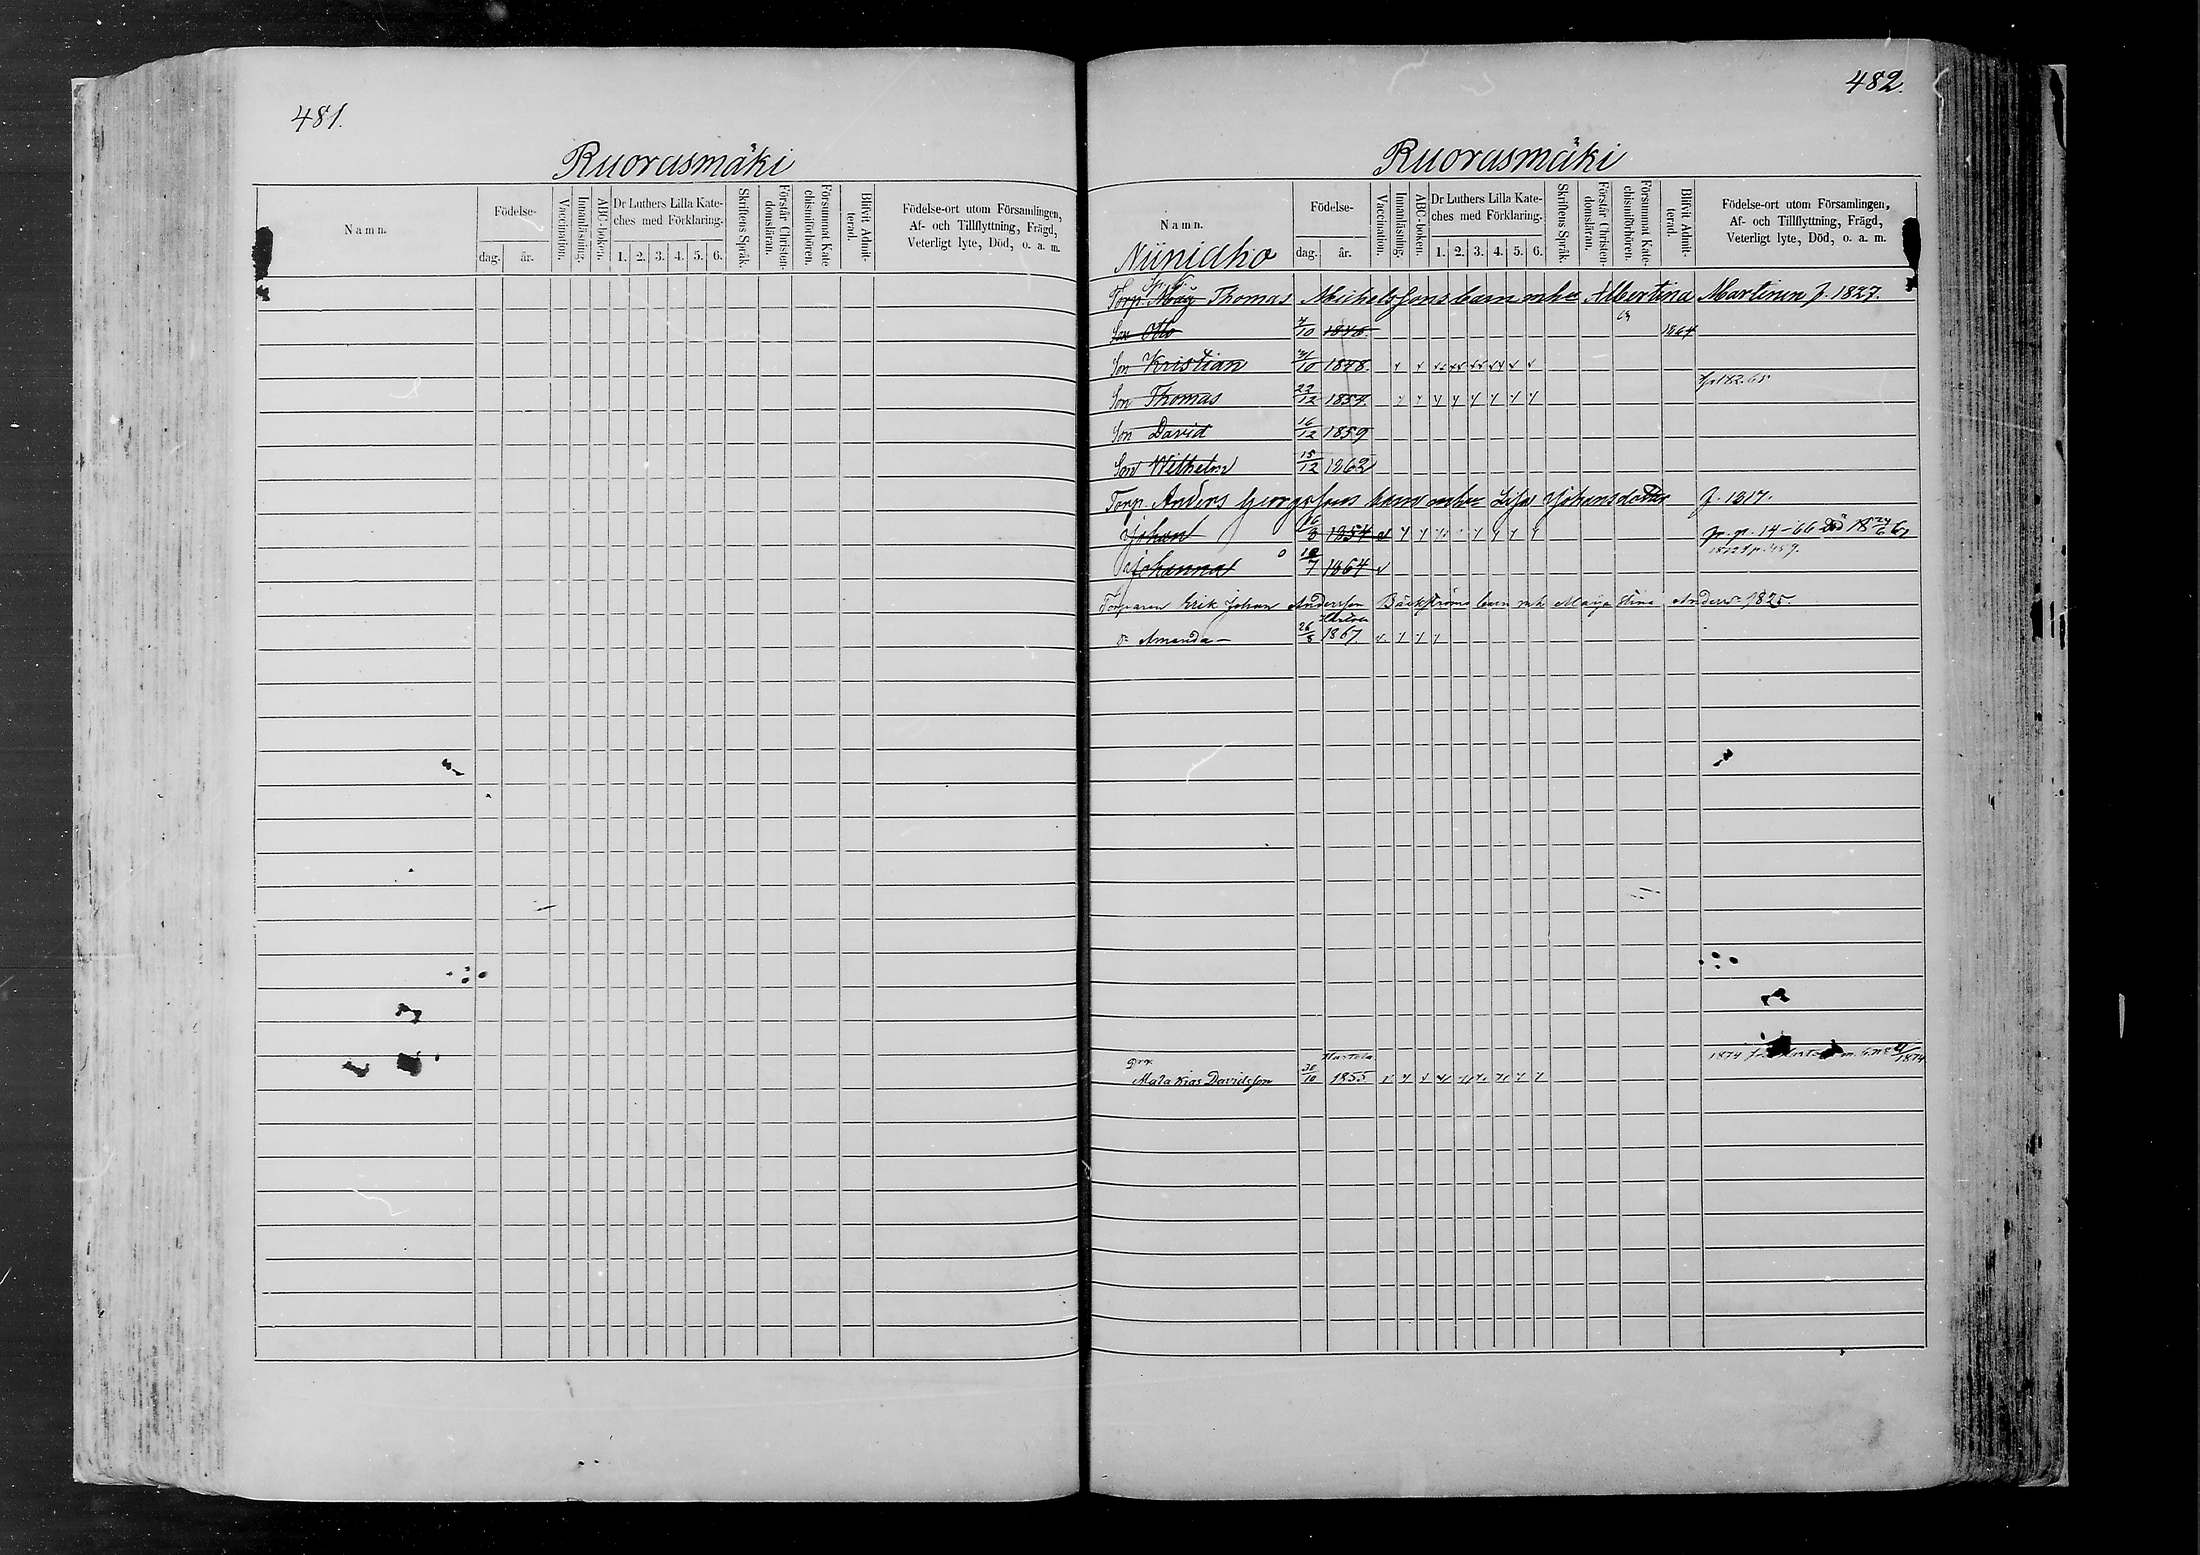 481.
Ruorasmäki
Namn.
Födelse-
dag. år.
Vaccination.
Innanläsning.
ABC-boken.
Dr Luthers Lilla Kate-
ches med Förklaring.
1. 2. 3. 4. 5. 6.
Skriftens Språk.
Förstår Christen-
domsläran.
Försummat Kate-
chismiförhören.
Blifvit Admit-
terad.
Födelse-ort utom Församlingen,
Af- och Tillflyttning, Frägd,
Veterligt lyte, Död, o. a. m.
482.
Ruorasmäki
Namn.
Niinidho
Födelse-
dag. år.
Vaccination.
Innanläsning.
ABC-boken.
Dr Luthers Lilla Kate-
ches med Förklaring.
1. 2. 3. 4. 5. 6.
Skriftens Språk.
Förstår Christen-
domsläran.
Försummat Kate-
chismiförhören.
Blifvit Admit-
terad.
Födelse-ort utom Församlingen,
Af- och Tillflyttning, Frägd,
Veterligt lyte, Död, o. a. m.
Torp. Thomas Michelssons barn mhu Albertina Martinen f. 1827.
Son Otto 1864
Son Kristian 31/10 1848
Son Thomas 22/12 1854
Son David 16/12 1859
Son Wilhelm 15/12 1862
Torp. Anders Georgssons barn mhu Lisa Johansdotter f. 1817.
Johan 16/8 1854 p. p. 14-66 Död
Johanna 7 1864
Torparen Erik Johan Andersson Bäckströms barn mh Maija Stina Andersr 1825.
dr Amanda 26/8 1867
Hartola 1874
Malakias Davidsson 30/10 1855